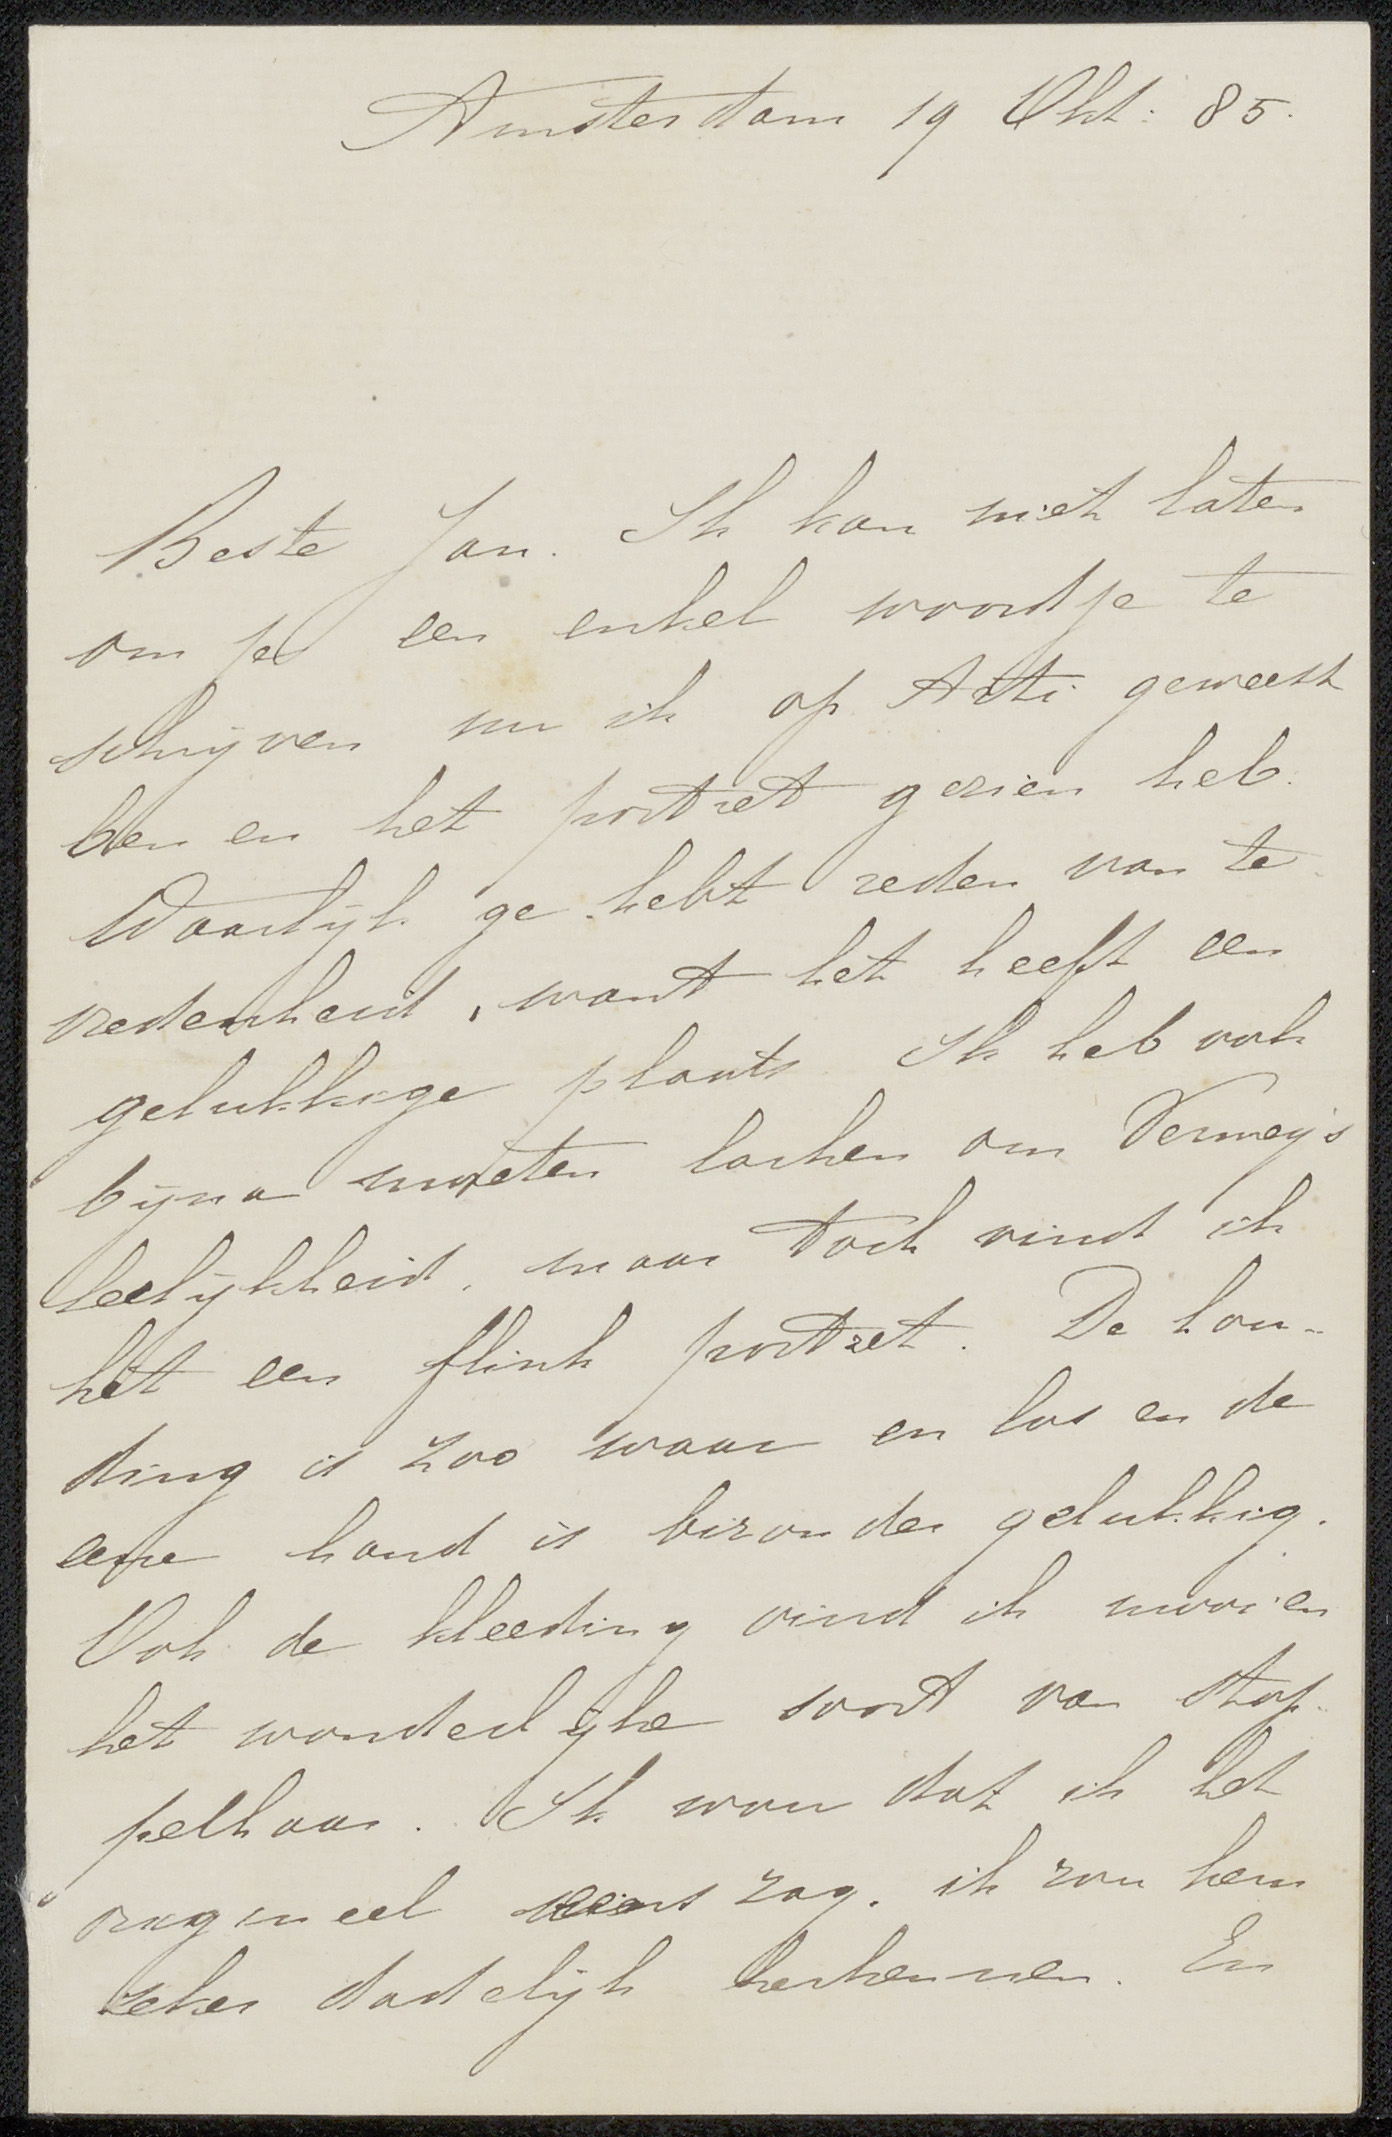 Amsterdam 19 Okt: 85.
Beste Jan. Ik kan niet laten
om je een enkel woordje te
schrijven nu ik op Arti geweest
ben en het portret gezien heb.
Waarlijk ge hebt reden van te
vredenheid, want het heeft een
gelukkige plaats. Ik heb ook
bijna moeten lachen om Vermey's
leelijkheid, maar toch vind ik
het een flink portret. De hou-
ding is zoo waar en los en de
eene hand is bizonder gelukkig.
Ook de kleeding vind ik mooi en
het wonderlijke soort van stop-
pelhaar. Ik wou dat ik het
origineel eens zag. ik zou hem
zeker dadelijk herkennen. En